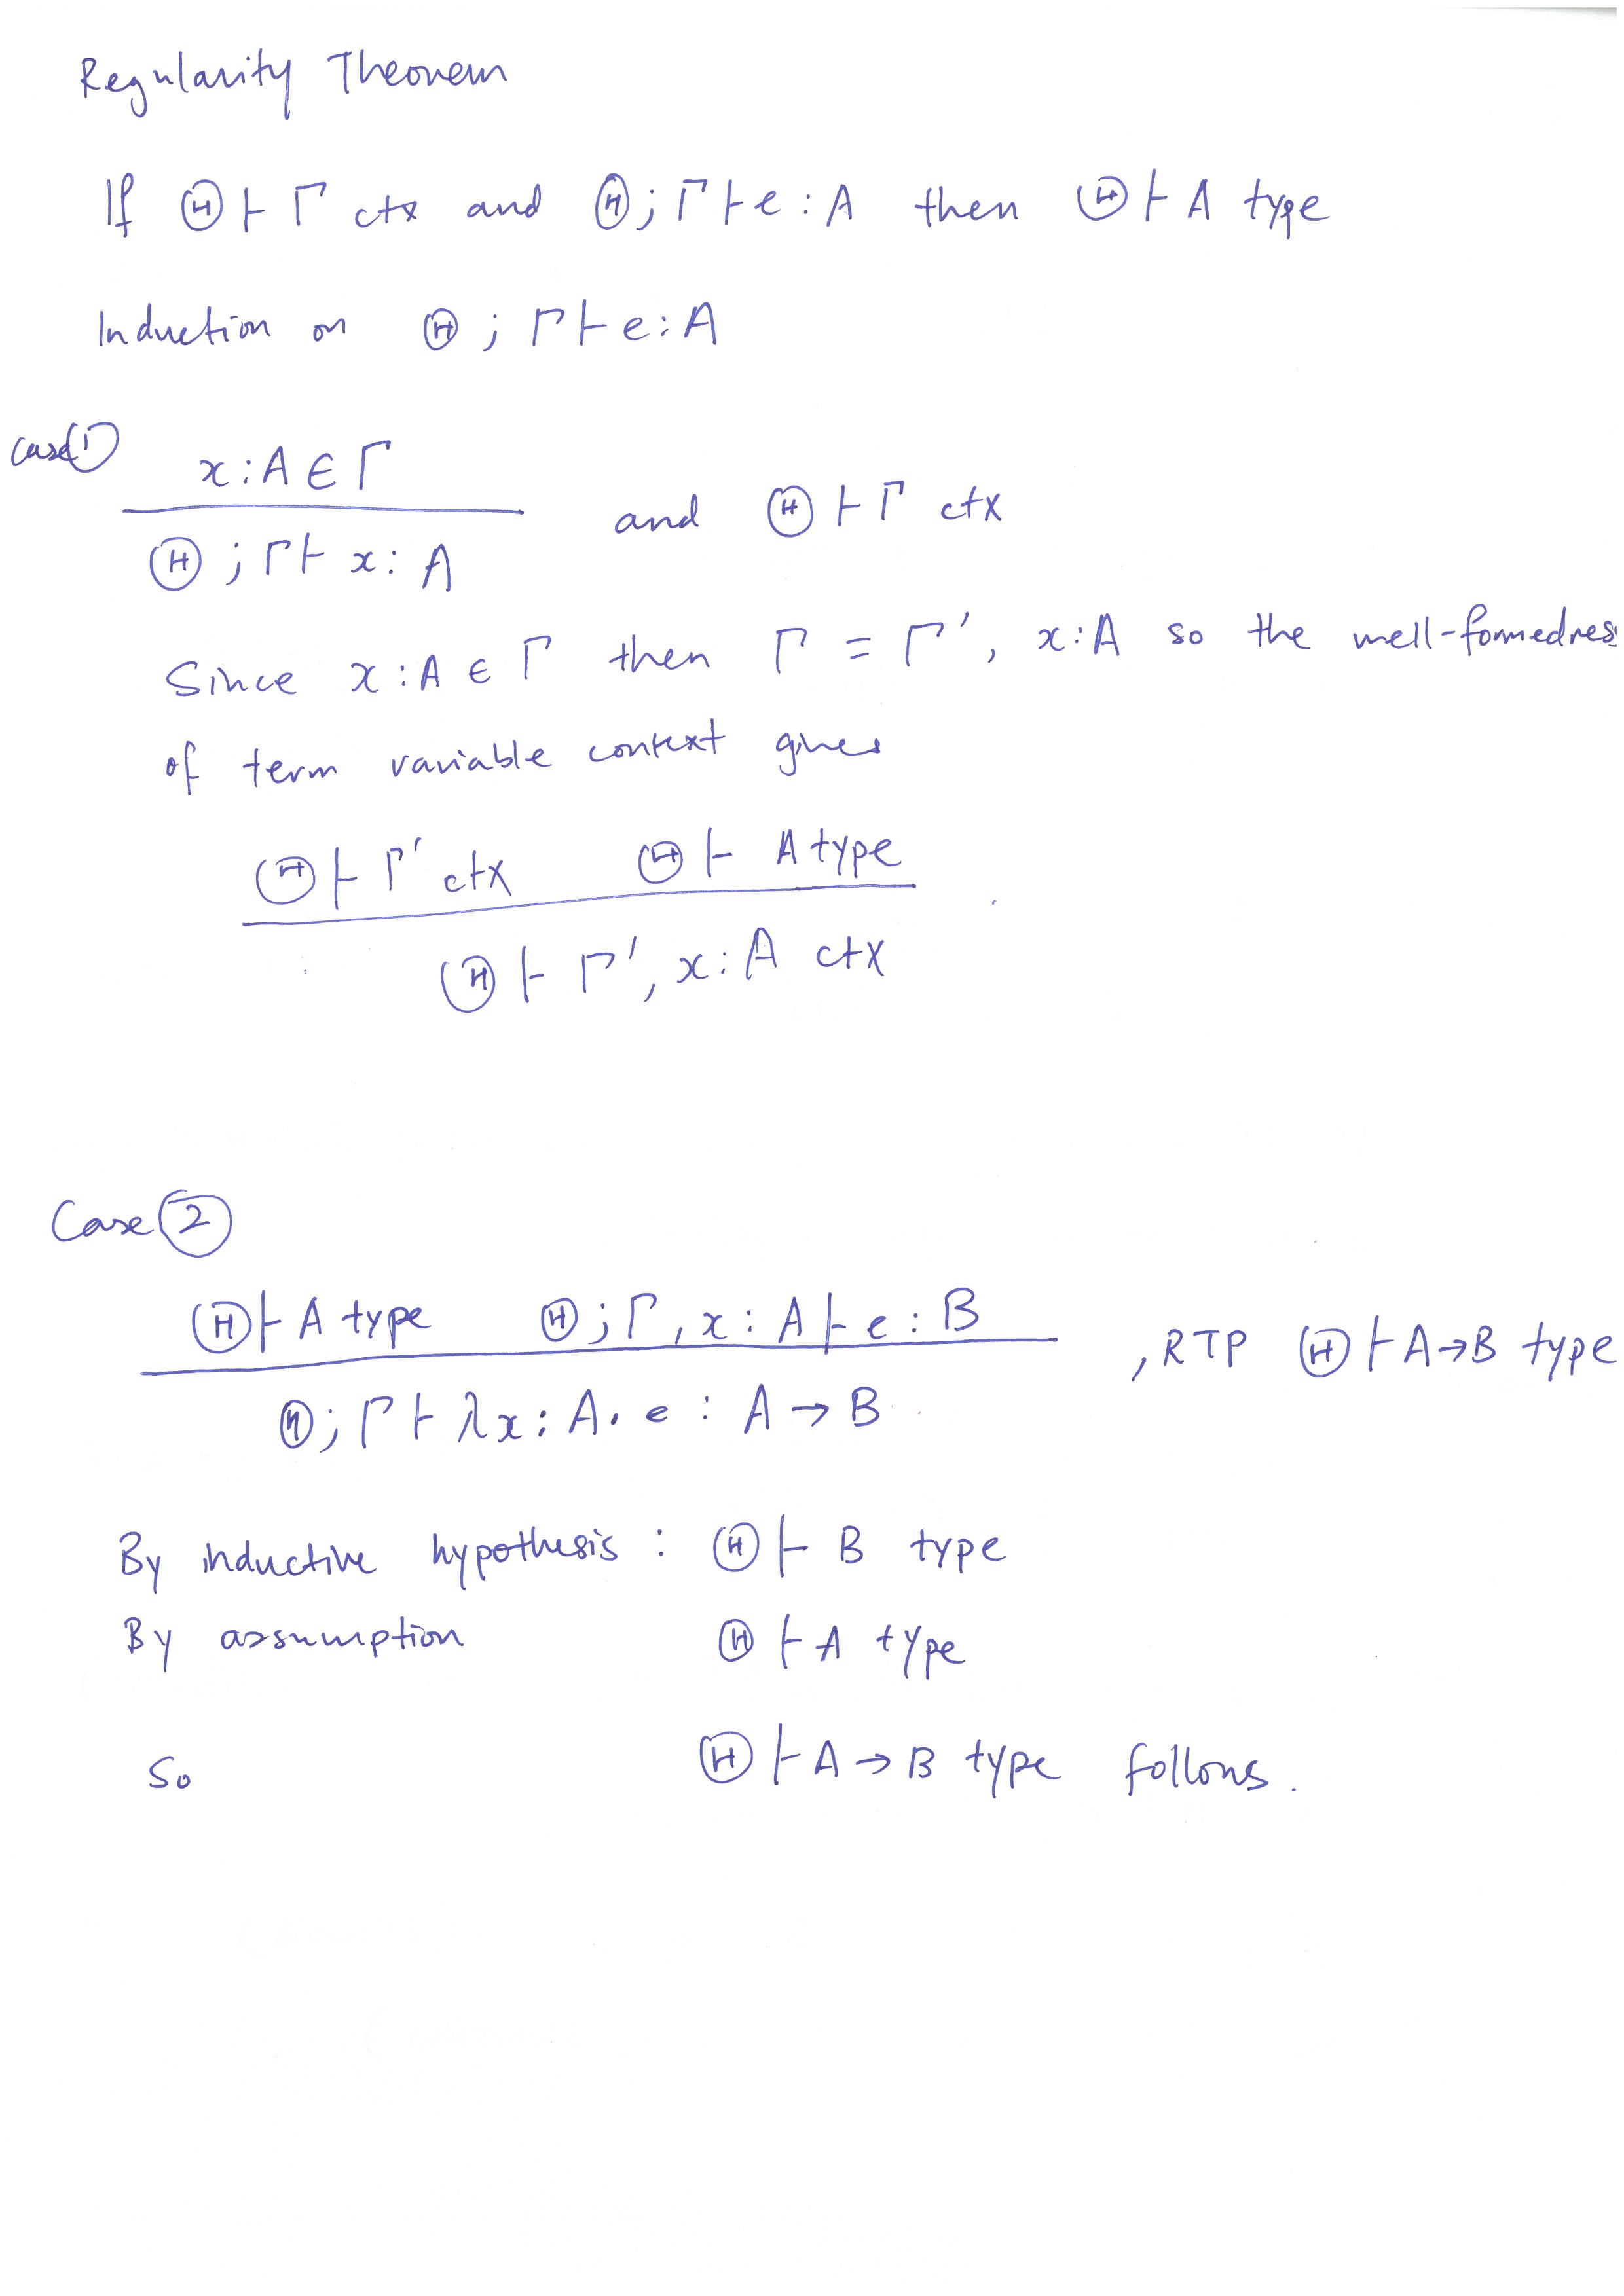 Regularity Theorem
If Θ ⊢ Γ ctx and Θ; Γ ⊢ e : A then Θ ⊢ A type
Induction on Θ; Γ ⊢ e : A
Case ①
x : A ∈ Γ
Θ; Γ ⊢ x : A
and Θ ⊢ Γ ctx
Since x : A ∈ Γ then Γ = Γ', x : A so the well-formedness
of term variable context gives
Θ ⊢ Γ' ctx Θ ⊢ A type
Θ ⊢ Γ', x : A ctx
Case ②
Θ ⊢ A type Θ; Γ, x : A ⊢ e : B
Θ; Γ ⊢ λx : A. e : A → B
, RTP Θ ⊢ A → B type
By inductive hypothesis : Θ ⊢ B type
By assumption Θ ⊢ A type
So Θ ⊢ A → B type follows.